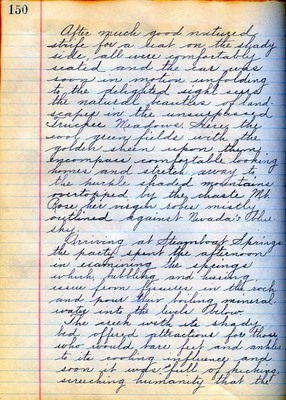 150
After much good natured
strife for a seat on the shady
side, all were comfortably
seated and the car was
soon in motion unfolding
to the delighted sight seers
the natural beauties of land-
scape in the unsurpassed
Truckee Meadows. Here the
soft green fields with the
golden sheen upon them
encompass comfortable looking
homes and stretch away to
the purple shaded mountains
overtopped by the chaste Mt.
Rose her virgin robes
outlined against Nevada's blue
sky.
Arriving at Steamboat Springs
the party spent the afternoon
in examining the springs
which, bubbling and hissing
issue from fissures in the rock
and pour their boiling mineral
water into the levels below.
The creek with its shady
offered attractions for those
who would bare feet and ankles
to its cooling influence and
soon it was full of kicking,
screeching humanity that the